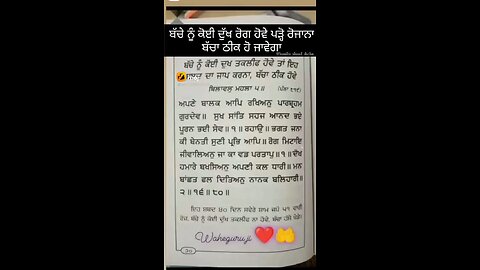 ਬੱਚੇ ਨੂੰ ਕੋਈ ਦੁੱਖ ਰੋਗ ਹੋਵੇ ਪੜ੍ਹੋ ਰੋਜਾਨਾ
ਬੱਚਾ ਠੀਕ ਹੋ ਜਾਵੇਗਾ
ਬੱਚੇ ਨੂੰ ਕੋਈ ਦੁਖ ਤਕਲੀਫ ਹੋਵੇ ਤਾਂ ਇਹ
ਦਾ ਜਾਪ ਕਰਨਾ, ਬੱਚਾ ਠੀਕ ਹੋਵੇ
ਬਿਲਾਵਲੁ ਮਹਲਾ ੫॥ (ਪੰਨਾ ੮੧੯)
ਅਪਣੇ ਬਾਲਕ ਆਪਿ ਰਖਿਅਨੁ ਪਾਰਬ੍ਰਹਮ
ਗੁਰਦੇਵ॥ ਸੁਖ ਸਾਂਤਿ ਸਹਜ ਆਨਦ ਭਏ
ਪੂਰਨ ਭਈ ਸੇਵ॥੧॥ਰਹਾਉ॥ ਭਗਤ ਜਨਾ
ਕੀ ਬੇਨਤੀ ਸੁਣੀ ਪ੍ਰਭਿ ਆਪਿ॥ ਰੋਗ ਮਿਟਾਇ
ਜੀਵਾਲਿਅਨੁ ਜਾ ਕਾ ਵਡ ਪਰਤਾਪੁ॥੧॥ ਦੋਖ
ਹਮਾਰੇ ਬਖਸਿਅਨੁ ਅਪਣੀ ਕਲ ਧਾਰੀ॥ ਮਨ
ਬਾਂਛਤ ਫਲ ਦਿਤਿਅਨੁ ਨਾਨਕ ਬਲਿਹਾਰੀ॥
੨॥੧੬॥੮੦॥
ਇਹ ਸ਼ਬਦ ੪੦ ਦਿਨ ਸਵੇਰੇ ਸ਼ਾਮ ਕਰੋ ੫੧ ਵਾਰੀ
ਰੋਜ਼, ਬੱਚੇ ਨੂੰ ਕੋਈ ਦੁੱਖ ਤਕਲੀਫ ਨਾ ਹੋਵੇ, ਬੱਚਾ ਹੱਸੇ ਖੇਡੇ।
Waheguruji
੨੦